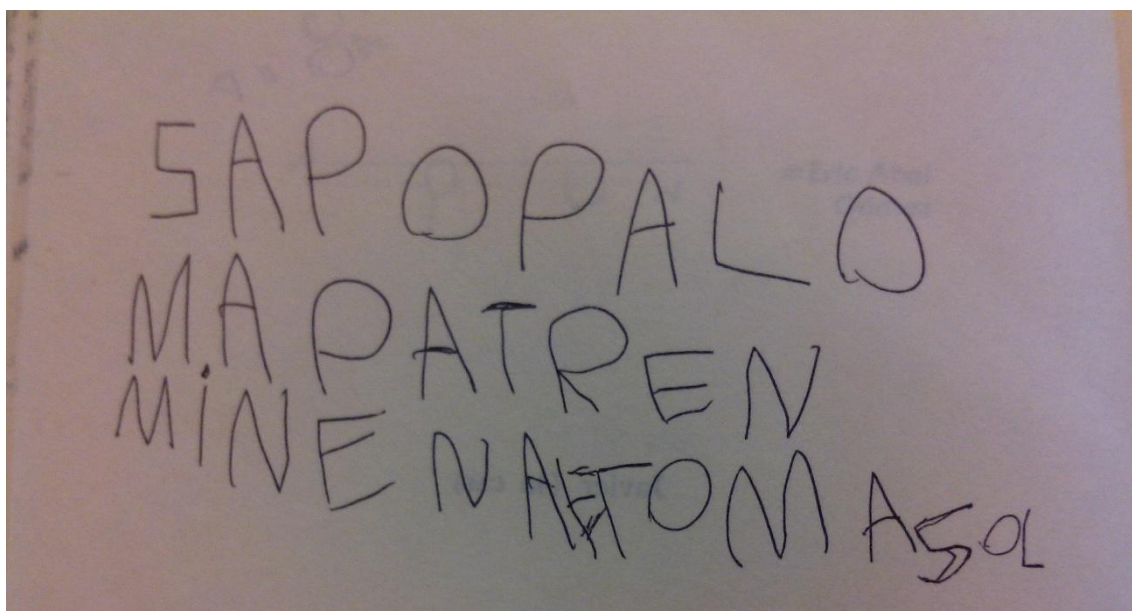 SAPOPALO
MAPATREN
MiNENA TOMASOL